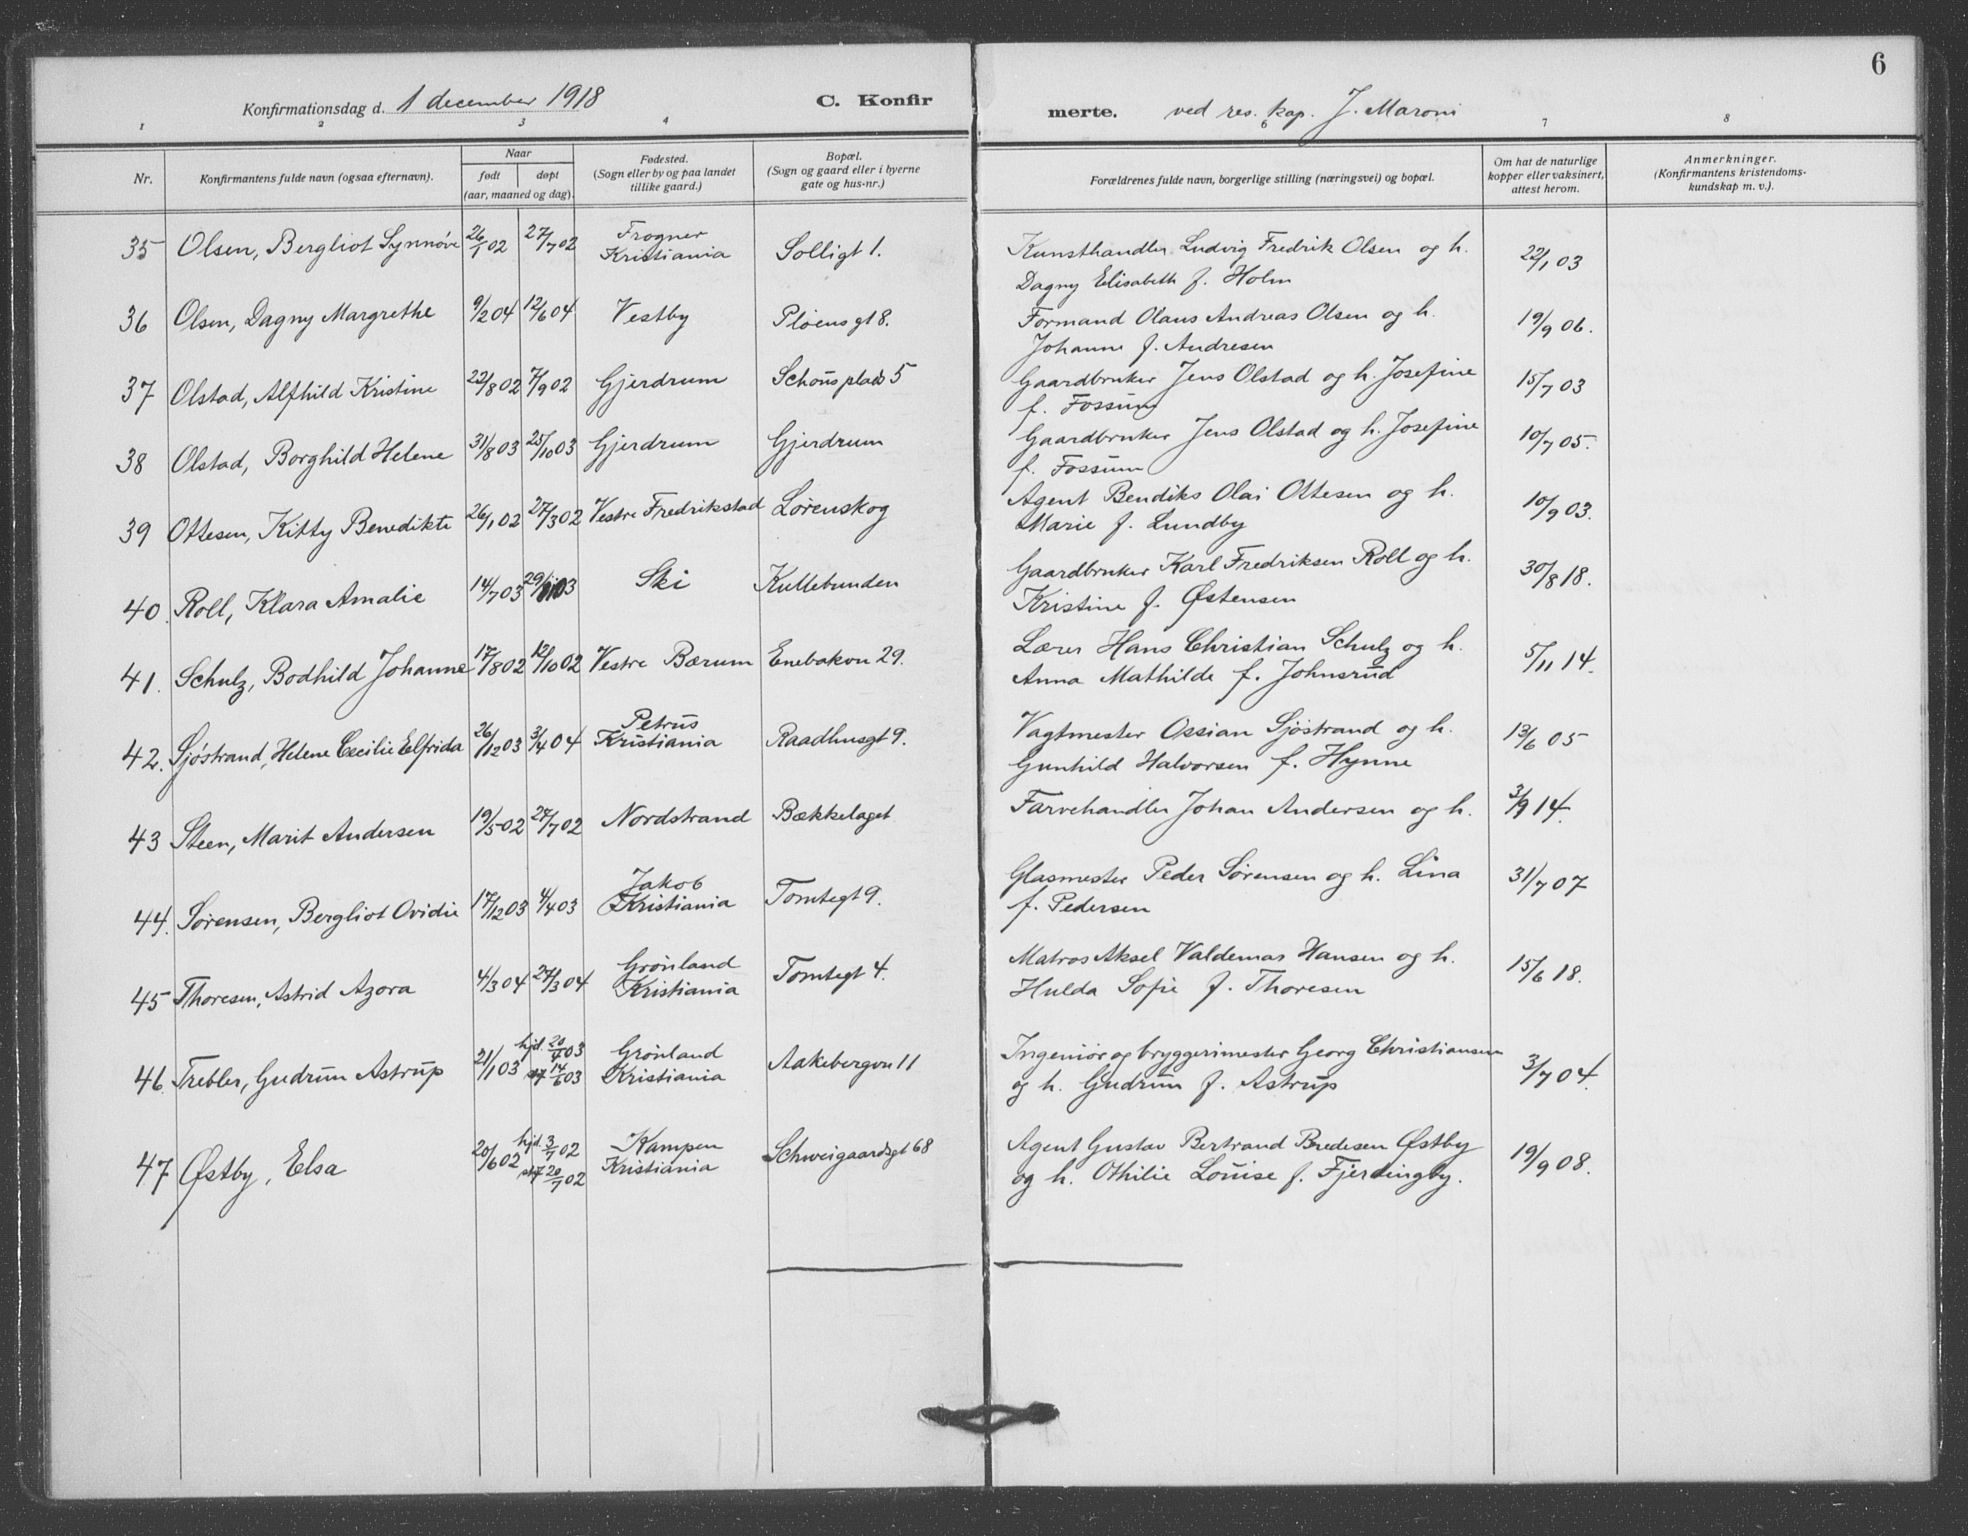 6
Konfirmationsdag d. 1 december 1918 C. Konfirmerte. ved res. kap. J. Maroni
1 2 3 4 6 7 8
Nr. Konfirmantens fulde navn (ogsaa efternavn). Naar født døpt (aar, maaned og dag). Fødested. (Sogn eller by og paa landet tillike gaard.) Bopæl. (Sogn og gaard eller i byerne gate og hus-nr.) Forældrenes fulde navn, borgerlige stilling (næringsvei) og bopæl. Om hat de naturlige kopper eller vaksinert, attest herom. Anmerkninger. (Konfirmantens kristendomskundskap m. v.).
35 Olsen, Bergliot Synnøve 26/1 02 27/7 02 Frogner Kristiania Solligt 1. Kunsthandler Ludvig Fredrik Olsen og h. 22/1 03
Dagny Elisabeth f. Holm
36 Olsen, Dagny Margrethe 9/2 04 12/6 04 Vestby Pløensgt 8. Formand Olaus Andreas Olsen og h. 19/9 06.
Johanne f. Andresen
37 Olstad, Alfhild Kristine 22/8 02 7/9 02 Gjerdrum Schous plads 5 Gaardbruker Jens Olstad og h. Josefine 15/7 03
f. Fossum
38 Olstad, Borghild Helene 31/8 03 25/10 03 Gjerdrum Gjerdrum Gaardbruker Jens Olstad og h. Josefine 10/7 05.
f. Fossum
39 Ottesen, Kitty Benedikte 26/1 02 27/3 02 Vestre Fredrikstad Lørenskog Agent Bendiks Olai Ottesen og h. 10/9 03.
Marie f. Lundby
40. Roll, Klara Amalie 14/7 03 29/11 03 Ski Kullebunden Gaardbruker Karl Fredriksen Roll og h. 30/8 18.
Kristine f. Østensen
41. Schulz, Bodhild Johanne 17/8 02 12/10 02 Vestre Bærum Enebakvn 29. Lærer Hans Christian Schulz og h. 5/11 14.
Anna Mathilde f. Johnsrud
42. Sjöstrand, Helene Cecilie Elfrida 26/12 03 3/4 04 Petrus Kristiania Raadhusgt 9. Vagtmester Ossian Sjöstrand og h. 13/6 05
Gunhild Halvorsen f. Hynne
43 Steen, Marit Andersen 19/5 02 27/7 02 Nordstrand Bækkelaget Farvehandler Johan Andersen og h. 3/9 14.
44. Sørensen, Bergliot Ovidie 17/12 03 4/4 03 Jakob Kristiania Tomtegt 9. Glasmester Peder Sørensen og h. Lina 31/7 07
f. Pedersen
45 Thoresen, Astrid Azora 4/3 04 27/3 04 Grønland Kristiania Tomtegt 4. Matros Aksel Valdemar Hansen og h. 15/6 18.
Hulda Sofie f. Thoresen
46. Trebler, Gudrun Astrup 21/1 03 hjd. 20/4 03 st 14/6 03 Grønland Kristiania Aakebergvn 11 Ingeniør og bryggerimester Georg Christiansen 3/7 04.
og h. Gudrun f. Astrup
47 Østby, Elsa 20/6 02 hjd. 3/7 02 st 20/7 02 Kampen Kristiania Schweigaardsgt 68 Agent Gustav Bertrand Bredesen Østby 19/9 08.
og h. Othilie Louise f. Fjerdingby.